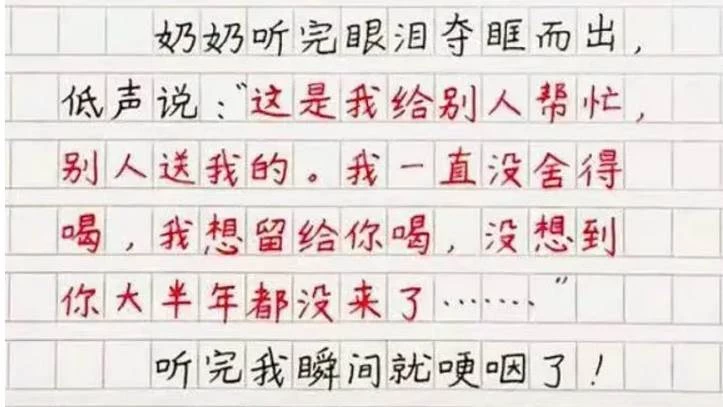 奶奶听完眼泪夺眶而出，
低声说：“这是我给别人帮忙，
别人送我的。我一直没舍得
喝，我想留给你喝，没想到
你大半年都没来了……”
听完我瞬间就哽咽了！